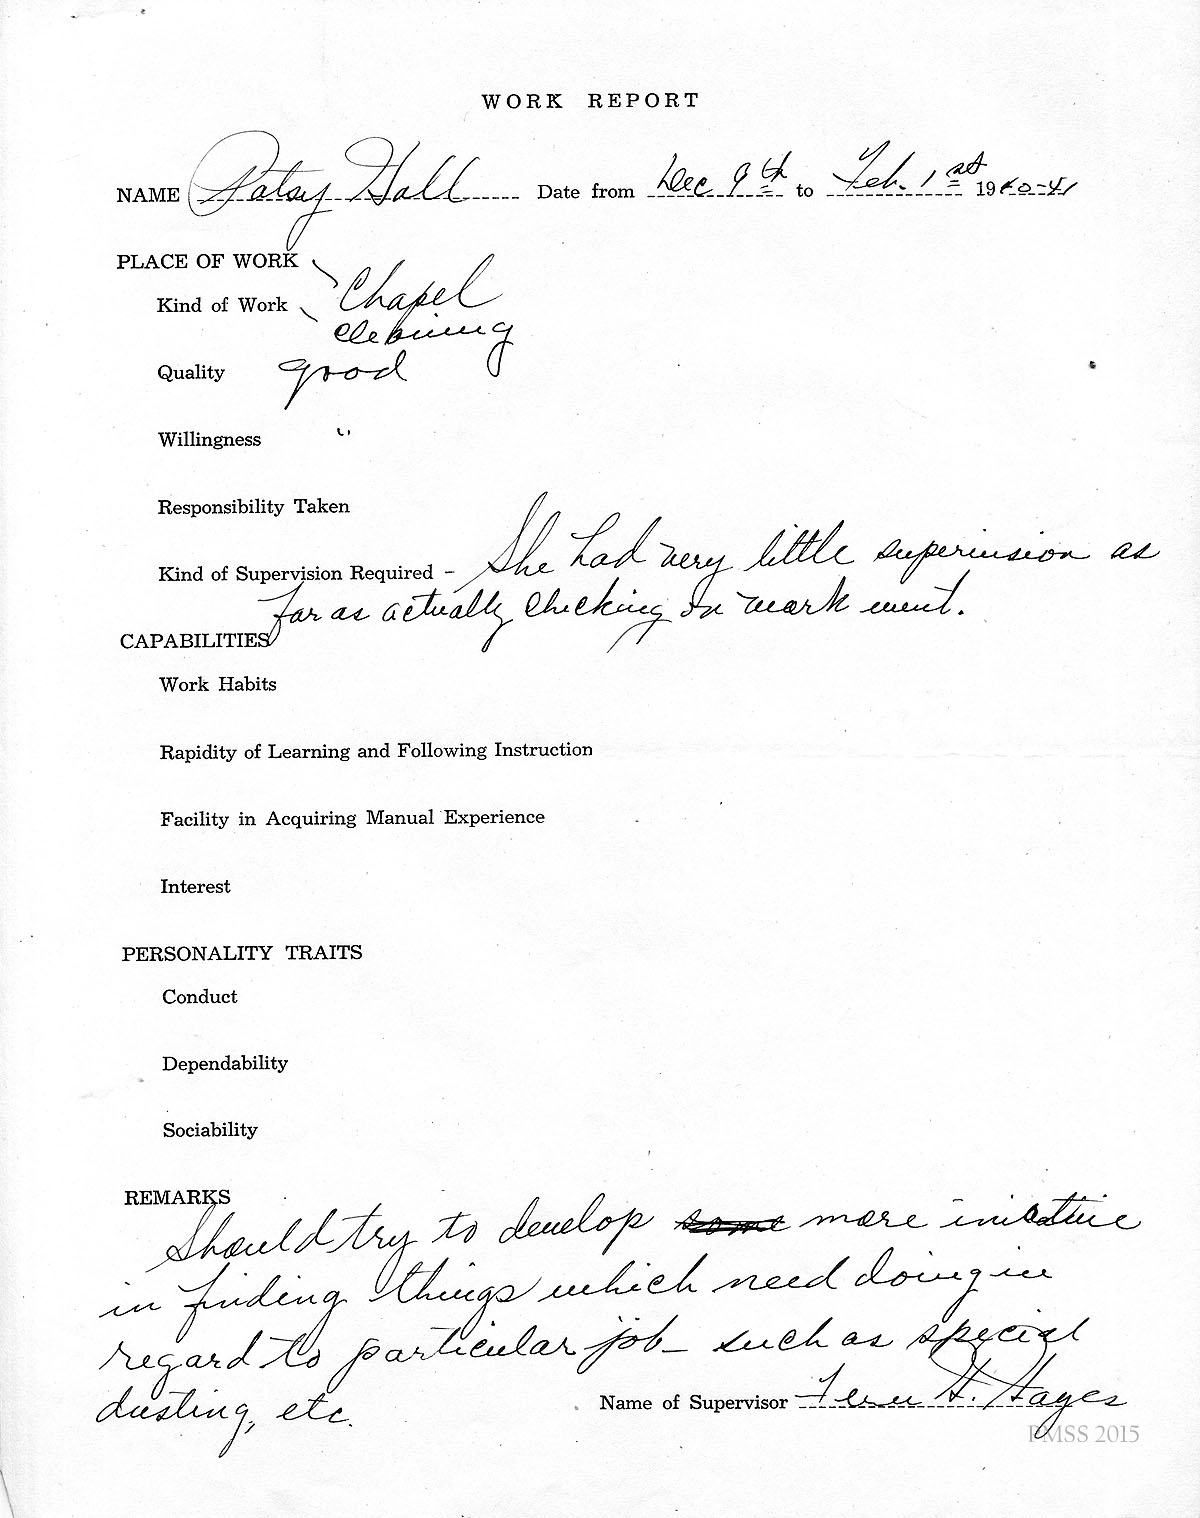 WORK REPORT
NAME Patsy Hall Date from Dec 9th to Feb. 1st 1940-41
PLACE OF WORK
Chapel
Kind of Work
Cleaning
Quality good
Willingness "
Responsibility Taken
Kind of Supervision Required - She had very little supervision as
far as actually checking on work went.
CAPABILITIES
Work Habits
Rapidity of Learning and Following Instruction
Facility in Acquiring Manual Experience
Interest
PERSONALITY TRAITS
Conduct
Dependability
Sociability
REMARKS
Should try to develop some more iniative
in finding things which need doing in
regard to particular job - such as special
dusting, etc.
Name of Supervisor Fern H. Hayes
PMSS 2015